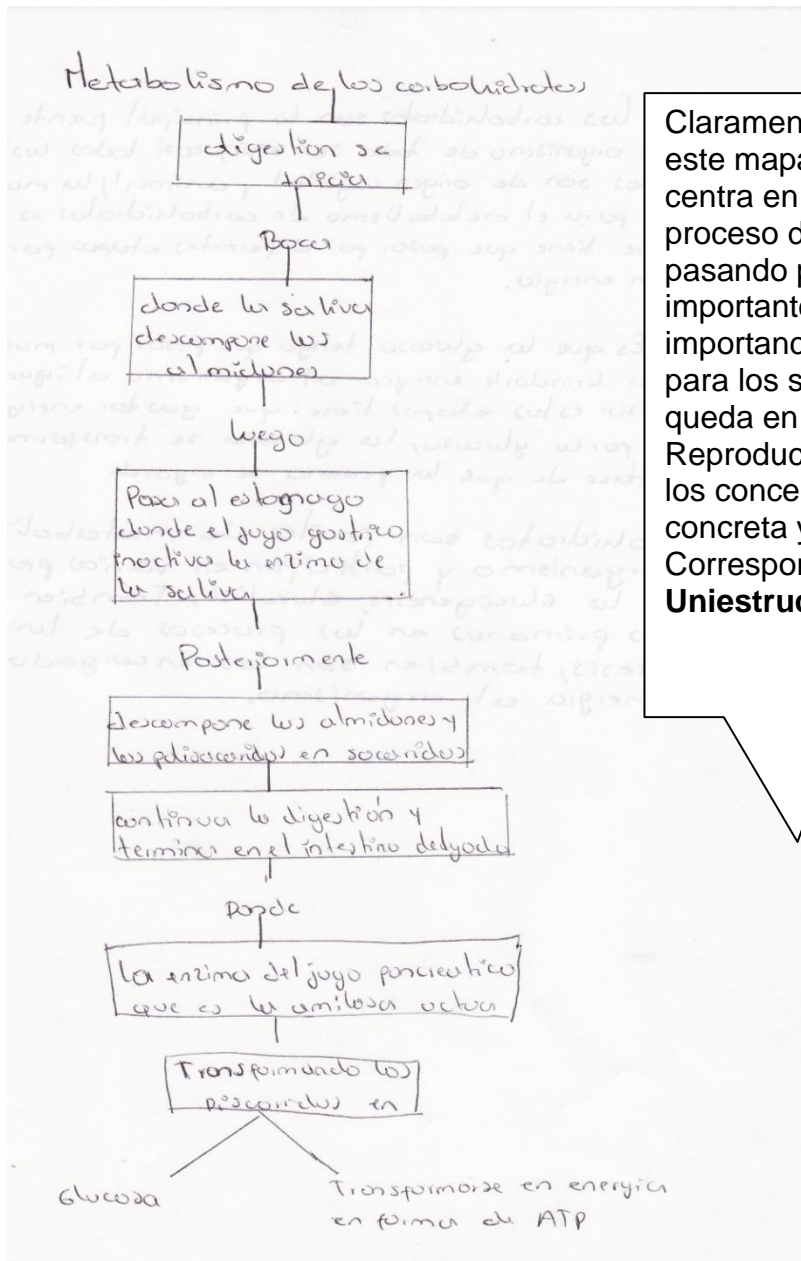 Metabolismo de los carbohidratos
digestion se
inicia
Boca
donde la saliva
descompone los
almidones
luego
Pasa al estomago
donde el jugo gastrico
inactiva la enzima de
la saliva
Posteriormente
descompone los almidones y
los polisacaridos en sacaridos
continua la digestión y
termina en el intestino delgado
Donde
La enzima del jugo pancreatico
que es la amilasa actua
Transformando los
en
Glucosa
Transformarse en energia
en forma de ATP
Claramen
este mapa
centra en
proceso d
pasando p
importante
importanc
para los s
queda en
Reproduc
los conce
concreta y
Correspor
Uniestruc